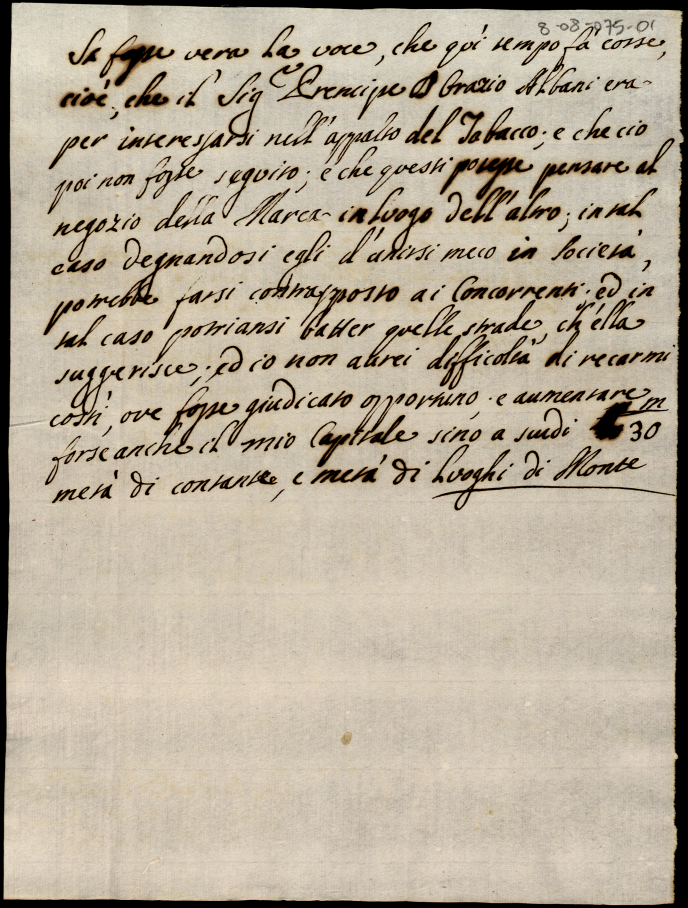 8-08-075-01
Se fosse vera la voce, che quì tempo fà corse,
cioé, che il Sigr Prencipe D Orazio Albani era
per interessarsi nell'appalto del Tabacco; e che ciò
poi non fosse seguito; e che questi potesse pensare al
negozio della Marca in luogo dell'altro; in tal
caso degnandosi egli d'unirsi meco in Società,
potrebbe farsi contrapposto ai Concorrenti; ed in
tal caso potriansi batter quelle strade, ch'ella
suggerisce; ed io non aurei difficoltà di recarmi
costì, ove fosse giudicato opportuno e aumentare
forse anche il mio Capitale sino a scudi 30 m
metà di contante, e metà di Luoghi di Monte